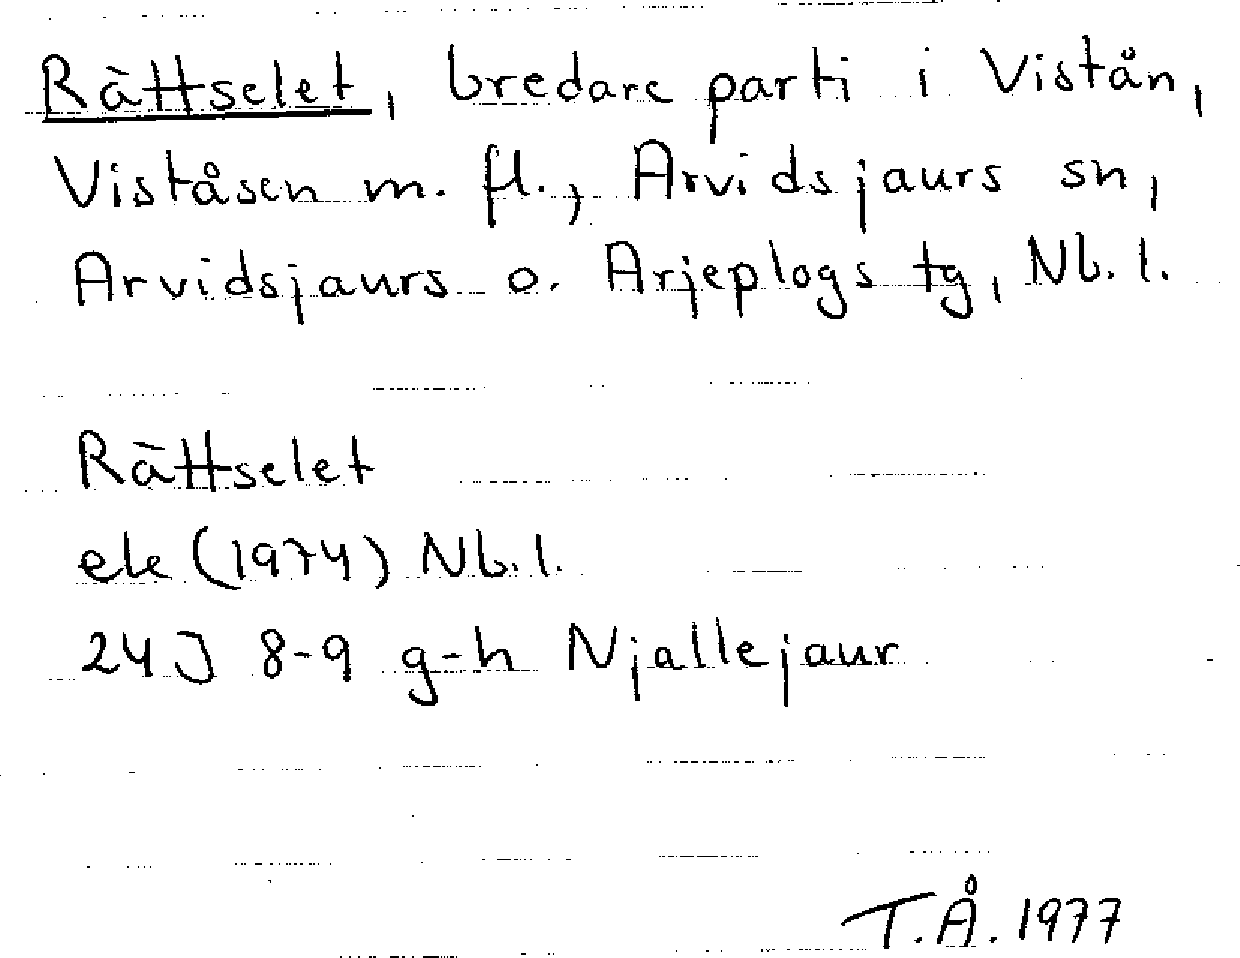 Rättselet, bredare parti i Vistån,
Viståsen m. fl., Arvidsjaurs sn,
Arvidsjaurs o. Arjeplogs tg, Nb. l.
Rättselet
ek (1974) Nb. l.
24J 8-9 g-h Njallejaur
T.Å. 1977